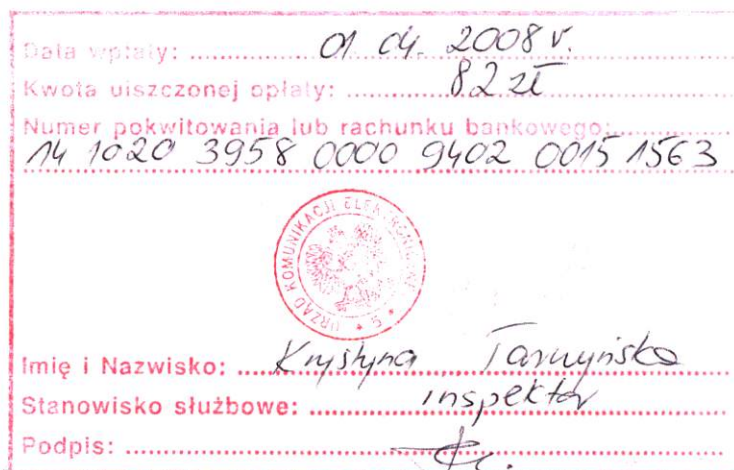 Data wpłaty: 01 04. 2008 r.
Kwota uiszczonej opłaty: 82 zł
Numer pokwitowania lub rachunku bankowego:
14 1020 3958 0000 9402 0015 1563
URZĄD KOMUNIKACJI ELEKTRONICZNEJ
* 5 *
Imię i Nazwisko: Krystyna
Stanowisko służbowe: inspektor
Podpis: